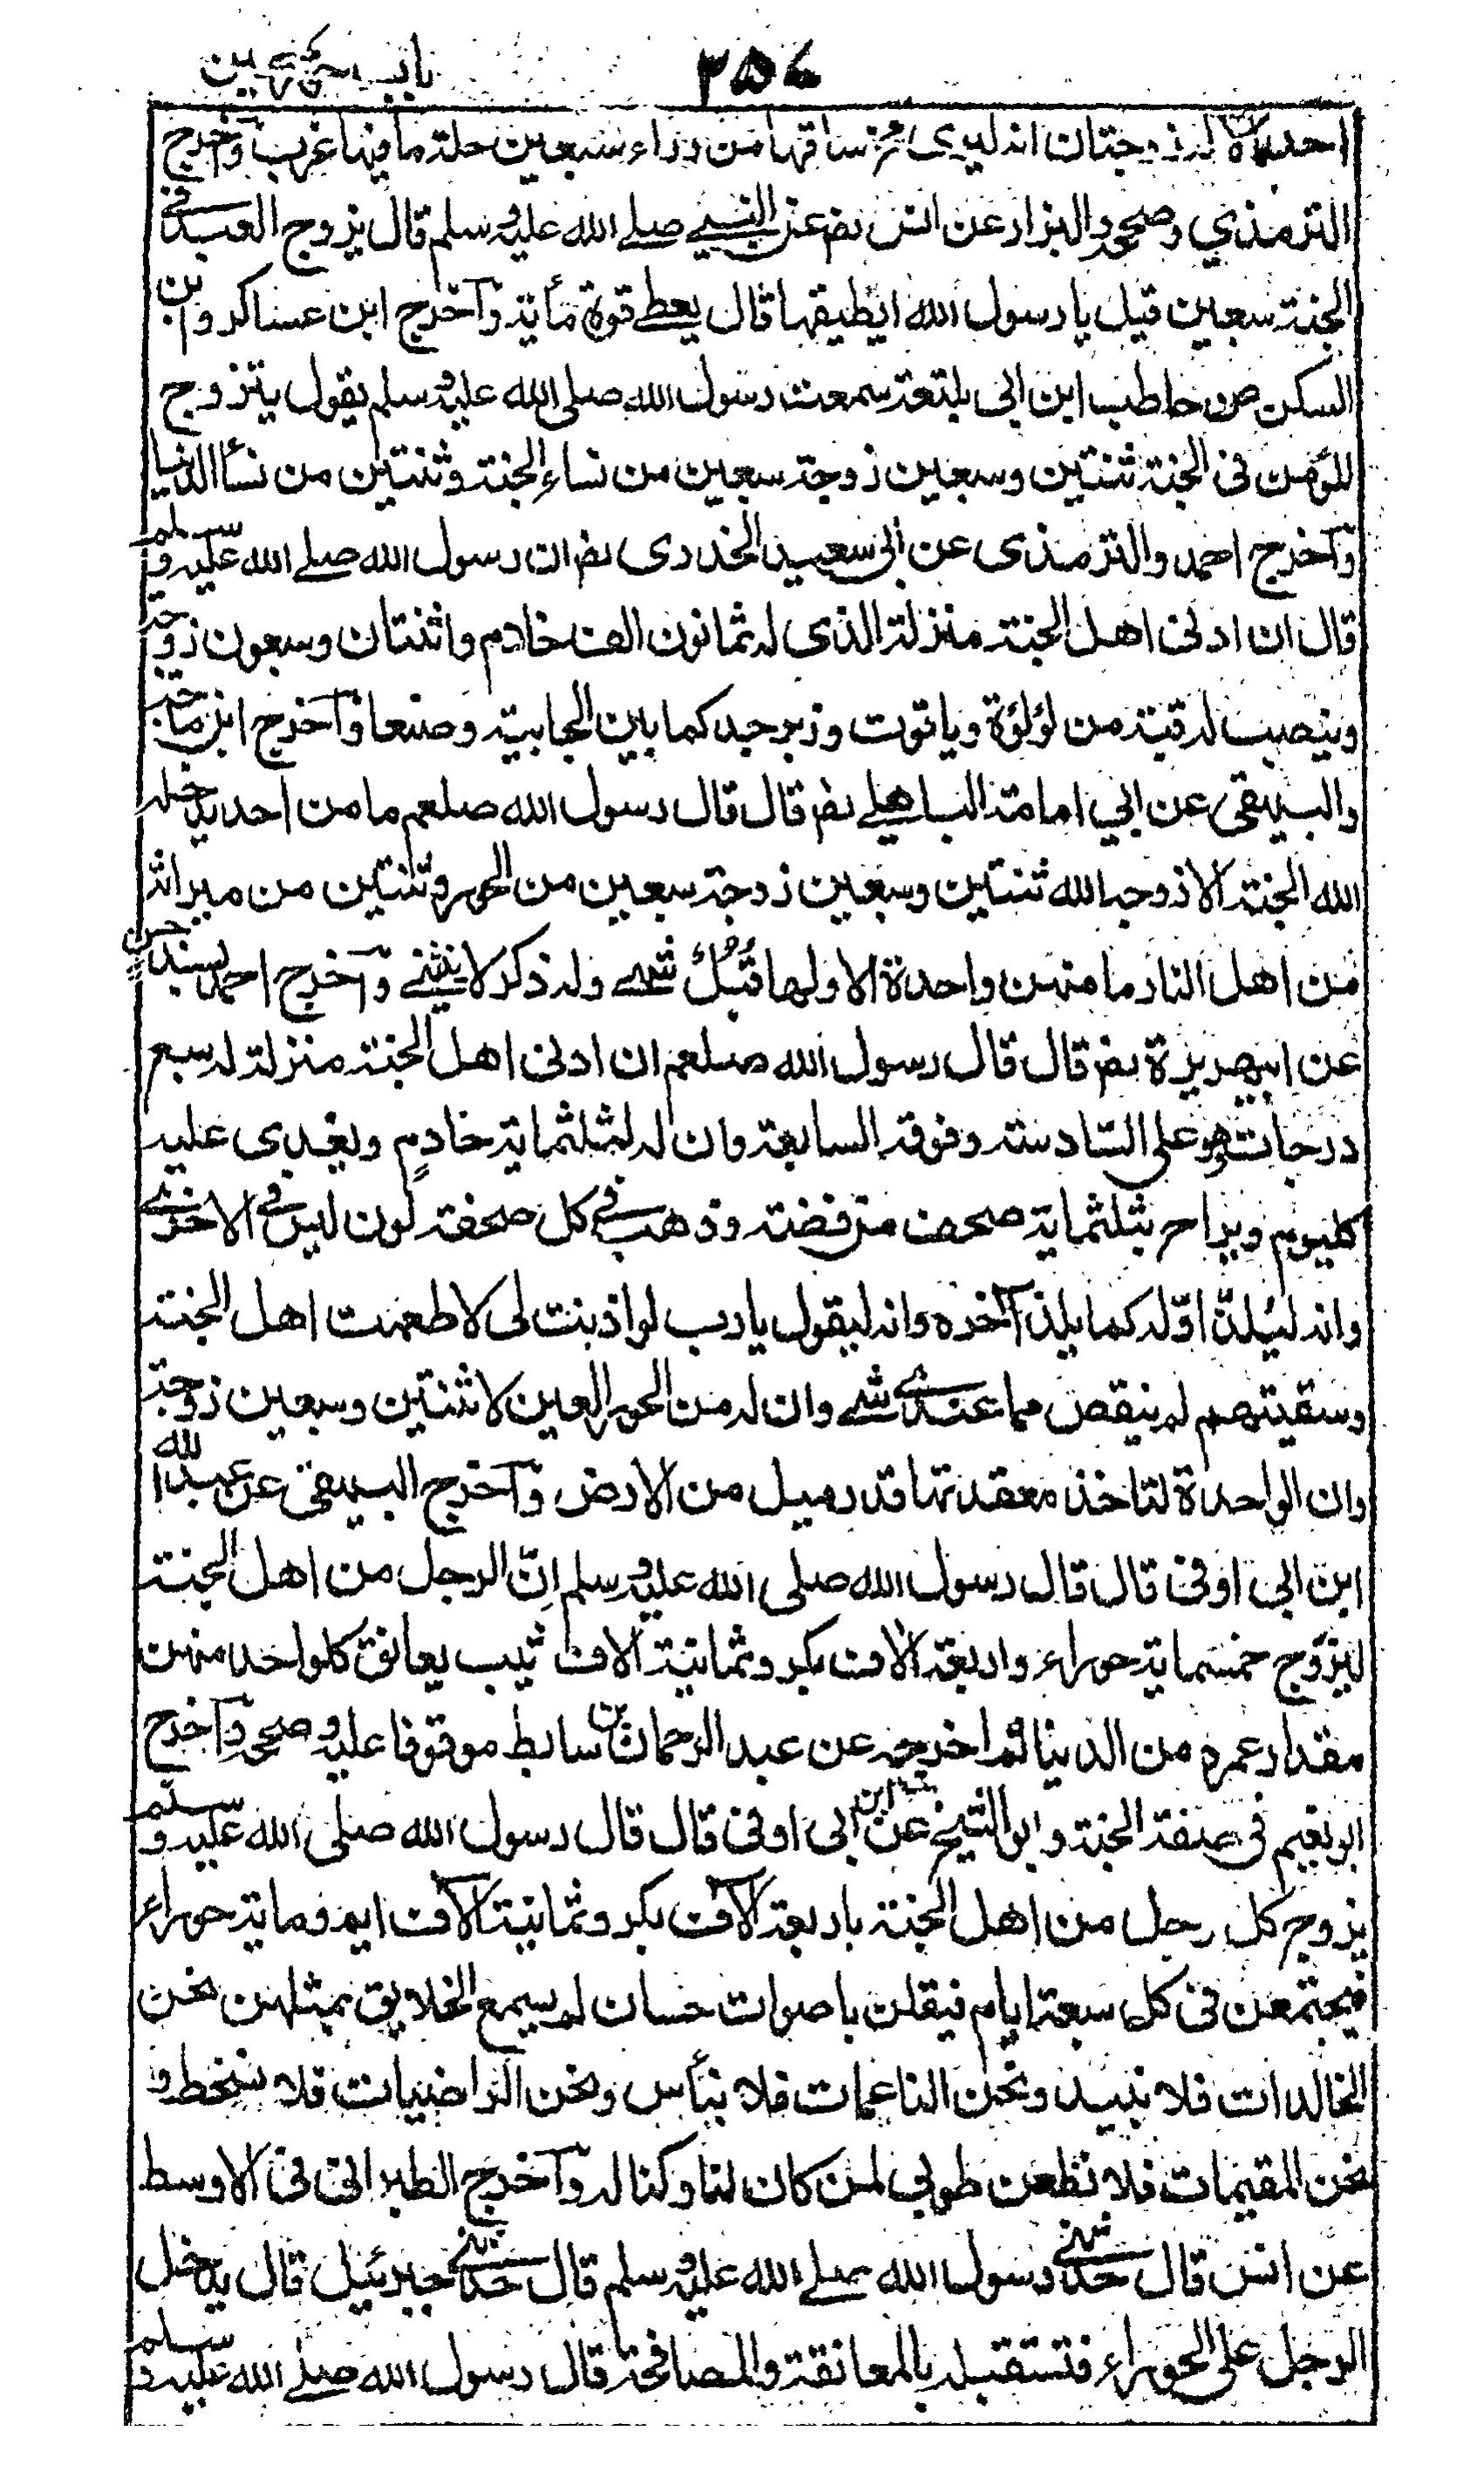 ٣٥٧ باب حور عين
احد الا له زوجتان انه ليرى مخ ساقها من وراء سبعين حلة ما فيها عزب وآخرج
الترمذي وصححه والبزار عن انس رضـ عن النبي صلے الله عليه وسلم قال يزوج العبد فے
الجنة سبعين قيل يا رسول الله ايطيقها قال يعطے قوة مأية وآخرج ابن عساكر وابن
السكن عن حاطب ابن ابى بلتعة سمعت رسول الله صلى الله عليه وسلم يقول يتزوج
المؤمن فى الجنة ثنتين وسبعين زوجة سبعين من نساء الجنة وثنتين من نسأ الدنيا
وآخرج احمد والترمذى عن ابى سعيد الخدرى رضـ ان رسول الله صلے الله عليه وسلم
قال ان ادنى اهل الجنة منزلة الذى له ثمانون الف خادم واثنتان وسبعون زوجة
وينصب له قبة من لؤلؤة وياقوت وزبرجد كما بين الجابية وصنعا وآخرج ابن ماجة
والبيهقى عن ابي امامة الباهلے رضـ قال قال رسول الله صلعم ما من احد يدخله
الله الجنة الا زوجه الله ثنتين وسبعين زوجة سبعين من الحور وثنتين من ميراثه
من اهل النار ما منهن واحدة الا ولها قُبُلٌ شهے وله ذكر لا ينثنے وآخرج احمد بسند حسن
عن ابيهريرة رضـ قال قال رسول الله صلعم ان ادنى اهل الجنة منزلة له سبع
درجات هو على السّادسة وفوقه السابعة وان له لثلثماية خادمٍ ويغدى عليه
كليوم ويراح بثلثماية صحفة من فضة وذهب فے كل صحفة لون ليس فے الاخرے
وانه ليُلذّ اوّله كما يلذ آخره وانه ليقول يا رب لو اذنت لى لاطعمت اهل الجنة
وسقيتهم لم ينقص مما عندے شے وان له من الحور العين لاثنتين وسبعين زوجة
وان الواحدة لتاخذ مقعدتها قدر ميل من الارض وآخرج البيهقى عن عبد الله
ابن ابى اوفى قال قال رسول الله صلى الله عليه وسلم انّ الرجل من اهل الجنة
ليزوّج خمسماية حوراء واربعة الاف بكر وثمانية الاف ثيب يعانق كلواحد منهن
مقدار عمره من الدنيا ثم اخرجه عن عبد الرحمان بن سابط موقوفا عليه وصححه وآخرج
ابو نعيم فى صفة الجنة وابو الشيخ عن ابن ابى اوفى قال قال رسول الله صلى الله عليه وسلم
يزوج كل رجل من اهل الجنة باربعة آلاف بكر وثمانية آلاف ايم وماية حوراء
فيجتمعن فى كل سبعة ايام فيقلن باصوات حسان لم يسمع الخلايق بمثلهن نحن
الخالدات فلا نبيد ونحن الناعمات فلا نبأس ونحن الراضيات فلا نسخط و
نحن المقيمات فلا نظعن طوبى لمن كان لنا وكنا له وآخرج الطبرانى فى الاوسط
عن انس قال حدثنے رسول الله صلے الله عليه وسلم قال حدثنے جبرئيل قال يدخل
الرجل على الحوراء فتستقبله بالمعانقة والمصافحة قال رسول الله صلے الله عليه وسلم